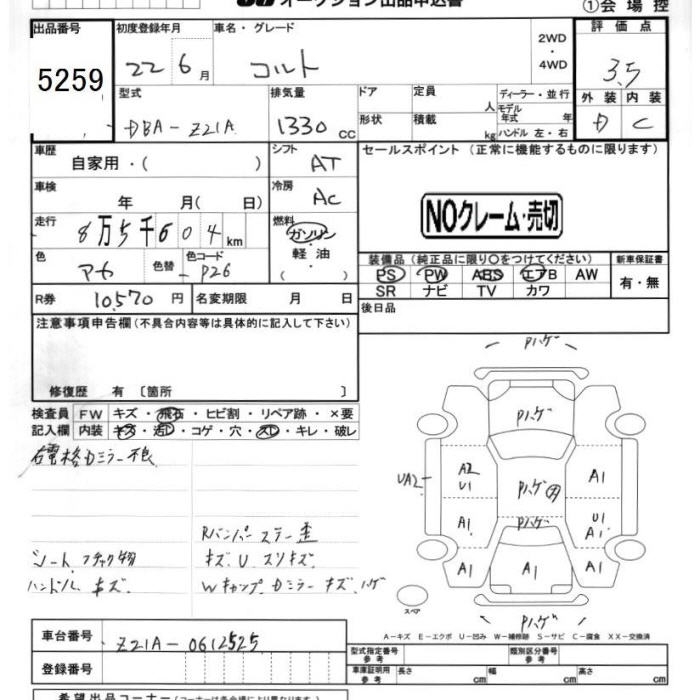 オークション出品申込書
①会場控
出品番号
5259
初度登録年月
22 6月
車名・グレード
コルト
2WD
・
4WD
評価点
3.5
外装 内装
D C
型式
DBA-Z21A
排気量
1330 cc
ドア
定員
人
形状
積載
kg
ディーラー・並行
モデル年式 年
ハンドル 左・右
車歴
自家用・( )
シフト
AT
車検
年 月( 日)
冷房
AC
走行
8万5千604km
燃料
ガソリン
・
軽油
( )
色
アカ
色替
色コード
P26
R券
10,570円
名変期限 月 日
セールスポイント (正常に機能するものに限ります)
NOクレーム・売切
装備品 (純正品に限り○をつけてください)
PS PW ABS エアB AW
SR ナビ TV カワ
新車保証書
有・無
後日品
注意事項申告欄 (不具合内容等は具体的に記入して下さい)
修復歴 有 〔箇所 〕
検査員記入欄
FW キズ・飛石・ヒビ割・リペア跡・×要
内装 キズ・汚レ・コゲ・穴・スレ・キレ・破レ
右電格カミラー不良
Rバンパーステー歪
シート フチャク物
キズ、U、スリキズ
ハンドル キズ
Wキャップ カミラー キズ、ハゲ
Pハゲ
Pハゲ
A2
U1
UA2
Pハゲ
A1
A1
Pハゲ
U1
A1
A1
A1
A1
スペア
Pハゲ
A-キズ E-エクボ U-凹み W-補修跡 S-サビ C-腐食 XX-交換済
車台番号
Z21A-0612525
登録番号
型式指定番号
参考
類別区分番号
参考
車庫証明用
参考
長さ cm
幅 cm
高さ cm
希望出品コーナー